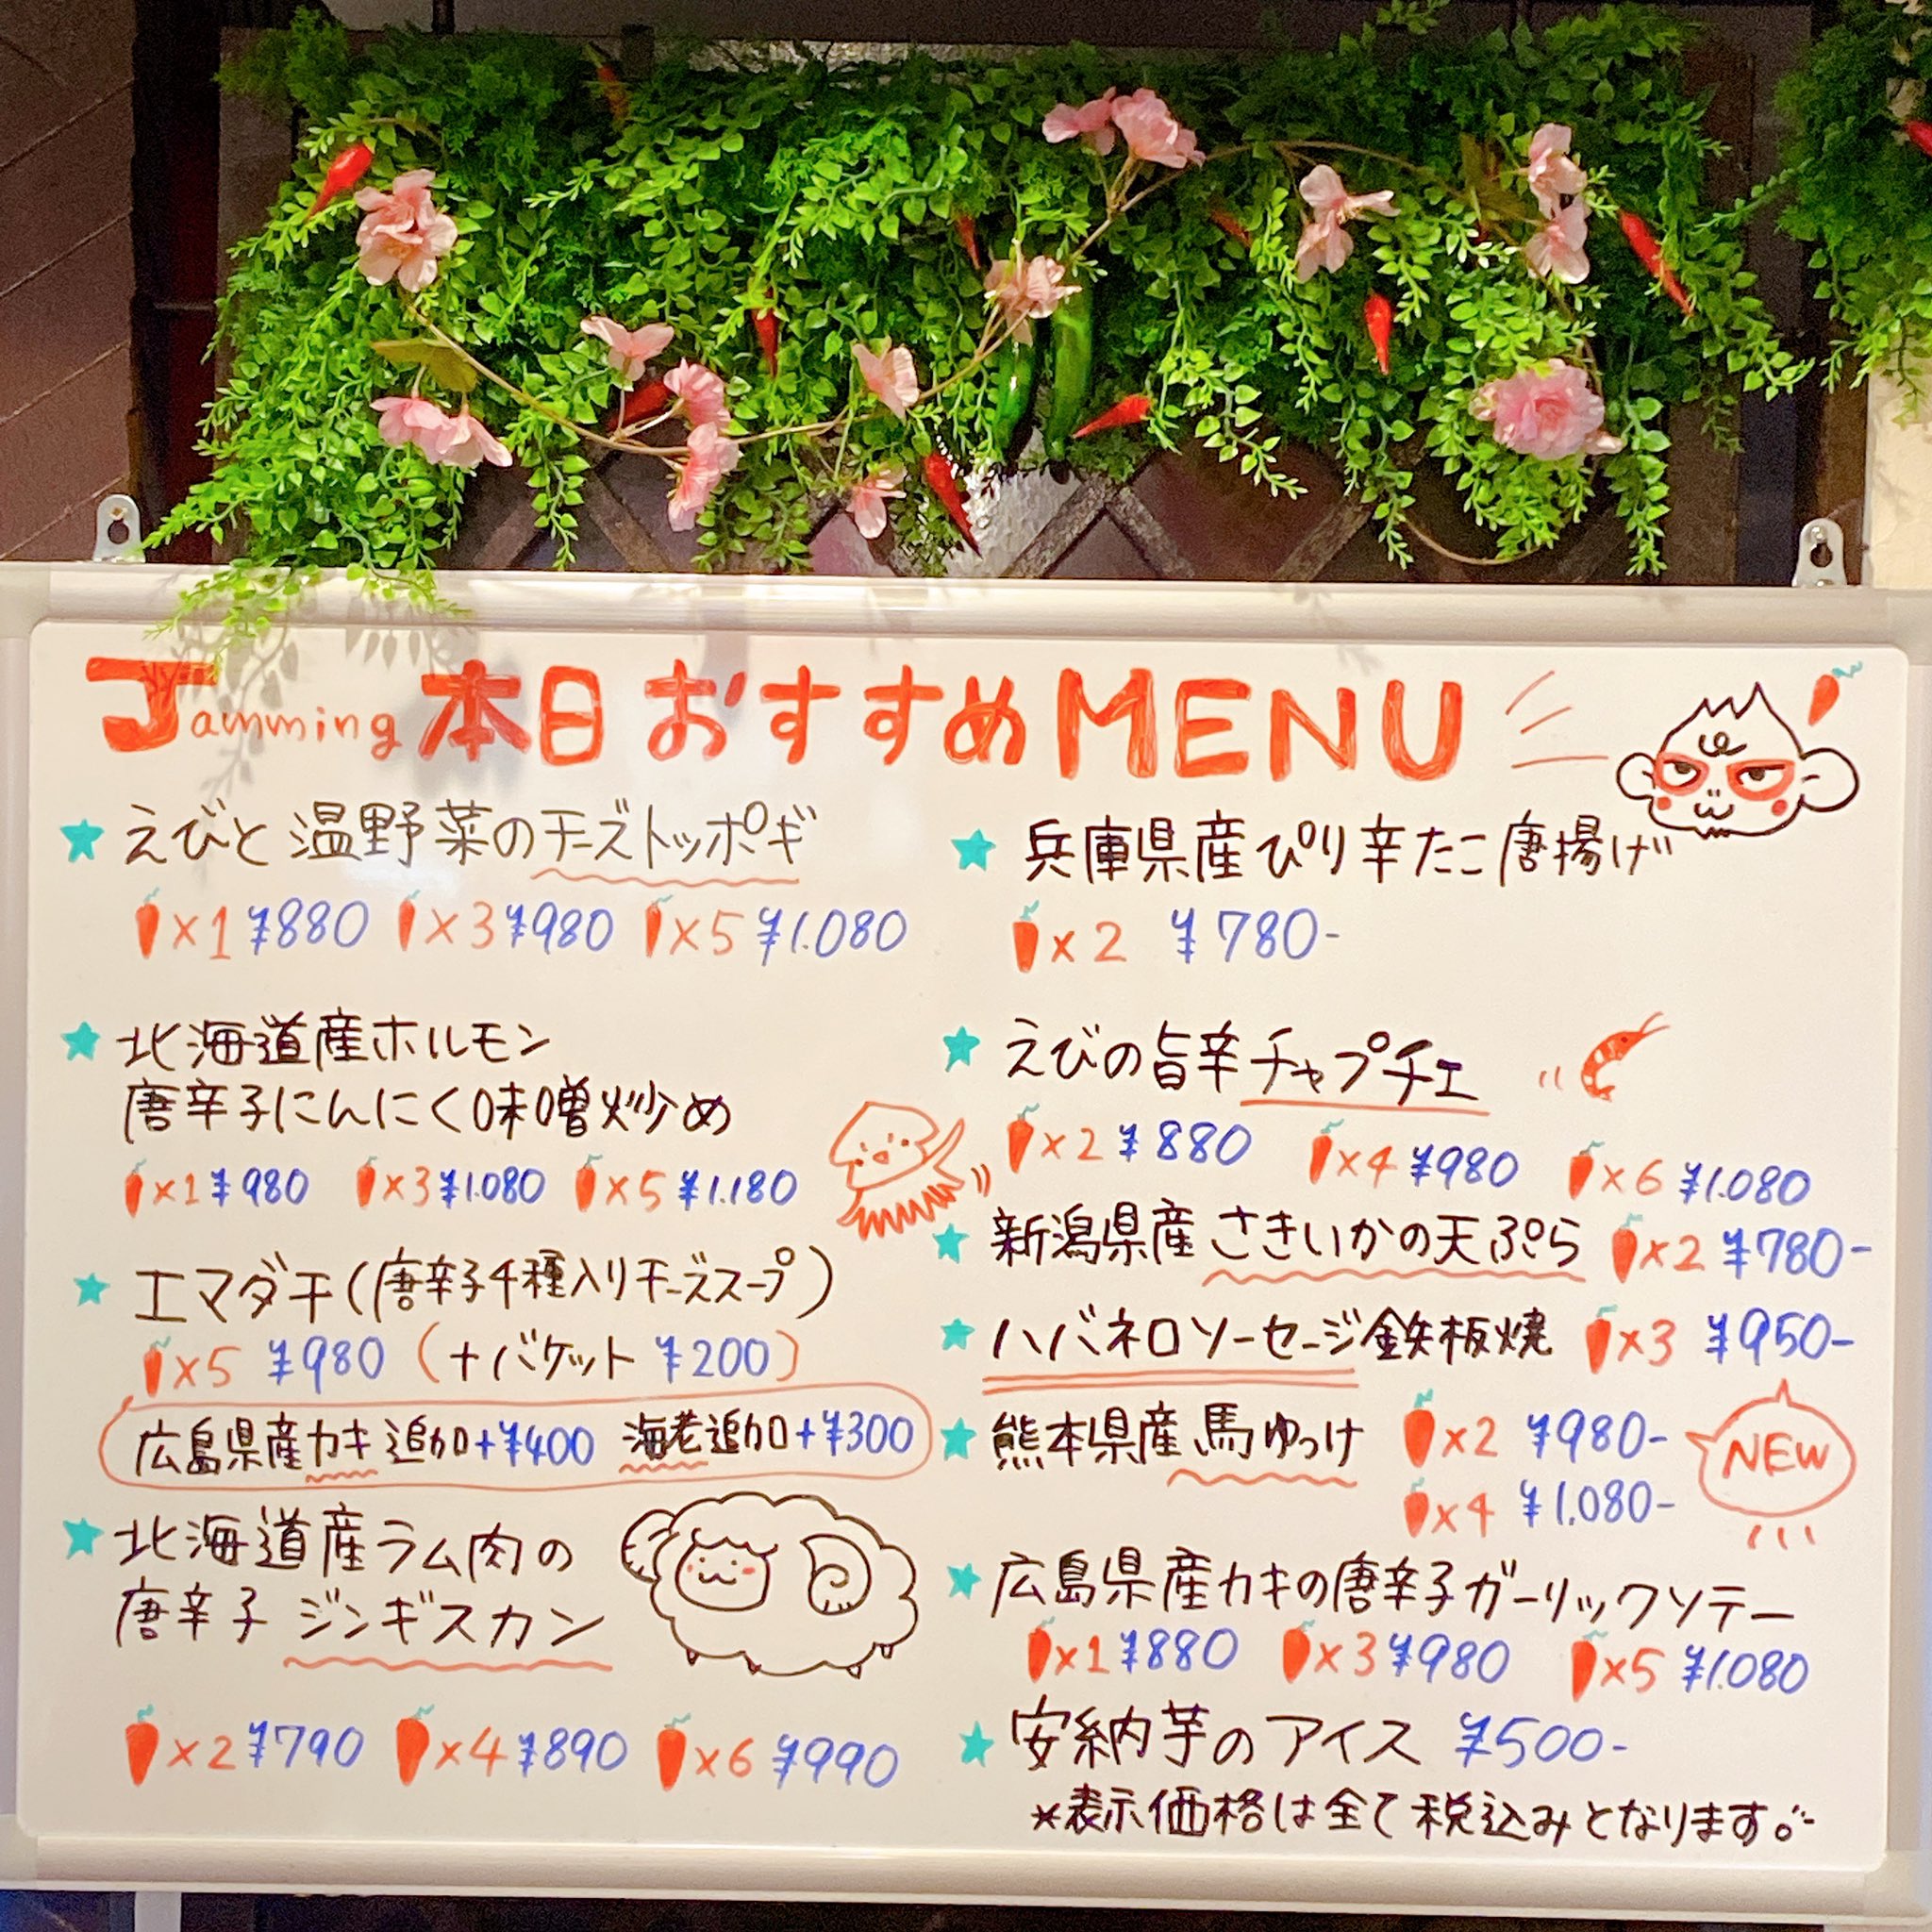 Jamming 本日おすすめMENU
★えびと温野菜のチーズトッポギ
×1 ¥880 ×3 ¥980 ×5 ¥1.080
★北海道産ホルモン
唐辛子にんにく味噌炒め
×1 ¥980 ×3 ¥1.080 ×5 ¥1.180
★エマダチ(唐辛子4種入りチーズスープ)
×5 ¥980 (+バケット ¥200)
広島県産カキ追加+¥400 海老追加+¥300
★北海道産ラム肉の
唐辛子 ジンギスカン
×2 ¥790 ×4 ¥890 ×6 ¥990
★兵庫県産ぴり辛たこ唐揚げ
×2 ¥780-
★えびの旨辛チャプチェ
×2 ¥880 ×4 ¥980 ×6 ¥1.080
★新潟県産 さきいかの天ぷら ×2 ¥780-
★ハバネロソーセージ鉄板焼 ×3 ¥950-
★熊本県産 馬ゆっけ ×2 ¥980-
×4 ¥1.080-
NEW
★広島県産カキの唐辛子ガーリックソテー
×1 ¥880 ×3 ¥980 ×5 ¥1.080
★安納芋のアイス ¥500-
*表示価格は全て税込みとなります。